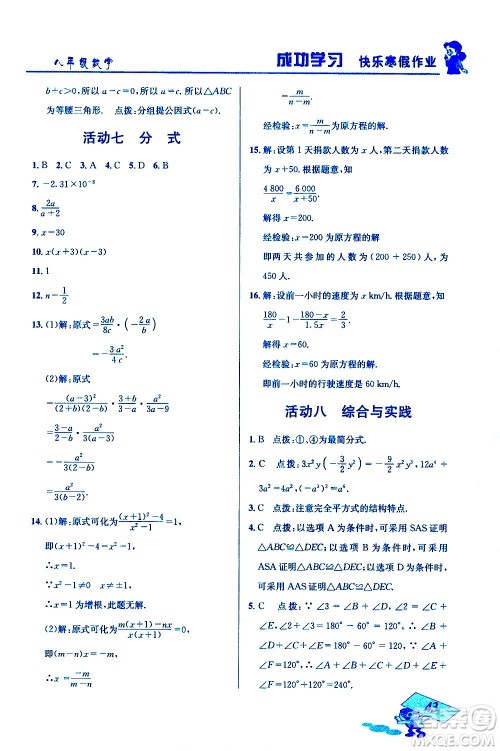 八年级数学
成功学习 快乐寒假作业
b+c>0,所以 a-c=0,所以△ABC
为等腰三角形. 点拨:分组提公因式(a-c).
活动七 分 式
1. B 2. C 3. A 4. C 5. D 6. B
7. -2.31×10⁻⁸
8. 2a/(a+2)
9. x=30
10. x(x+3)(x-3)
11. 1
12. n-1/2
13. (1)解:原式=3ab/8c·(-2a/b)
=-3a²/4c.
(2)解:原式
=(a-3)²/((2+b)(2-b))·(b-2)/(a-3)·a²/3
=-3/(2+b)·a²/(a-3)
=a²/(3(b-2)).
14. (1)解:原式可化为(x+1)²-4/(x²-1)=1
即(x+1)²-4=x²-1.
∴x=1.
∵x²-1≠0,∴x≠±1.
∴x=1 是增根,此题无解.
(2)解:原式可化为(m(x+1)-nx)/(x(x+1))=0,
即(m-n)x=-m.
∵m≠n,∴m-n≠0.
∴x=-m/(m-n)
=m/(n-m).
经检验:x=m/(n-m)为原方程的解.
15. 解:设第 1 天捐款人数为 x 人,第二天捐款人数为
x+50. 根据题意,可得
4 800/x=6 000/(x+50).
解得 x=200
经检验:x=200 为原方程的解
即两天共参加的人数为(200+250)人,共
450人.
16. 解:设前一小时的速度为 x km/h.根据题意,可得
180/x-1-(180-x)/1.5x=40/60.
解得:x=60.
经检验:x=60 为原方程的解.
即前一小时的行驶速度是 60 km/h.
活动八 综合与实践
1. B 点拨:①、④为最简分式.
2. C 点拨:3x²y(-3/2y)=-9/2x²y²,12a⁶÷
3a²=4a⁴.
3. C 点拨:注意完全平方式的结构特点.
4. C 点拨:以选项 A 为条件时,可采用 SAS证明
△ABC≌△DEC;以选项 B 为条件时,可采用
ASA证明△ABC≌△DEC;以选项 D 为条件时,
可采用 AAS证明△ABC≌△DEC.
5. C 点拨:∵∠3=∠A+∠B,∠2=∠C+
∠E,∠2+∠5=180°,∠3+∠6=180°,
∴∠5+∠6=360°-(∠A+∠B+∠C+
∠E)=120°,∴∠1=∠4=180°-120°
=60°.
43
答案圈
MXQE.COM